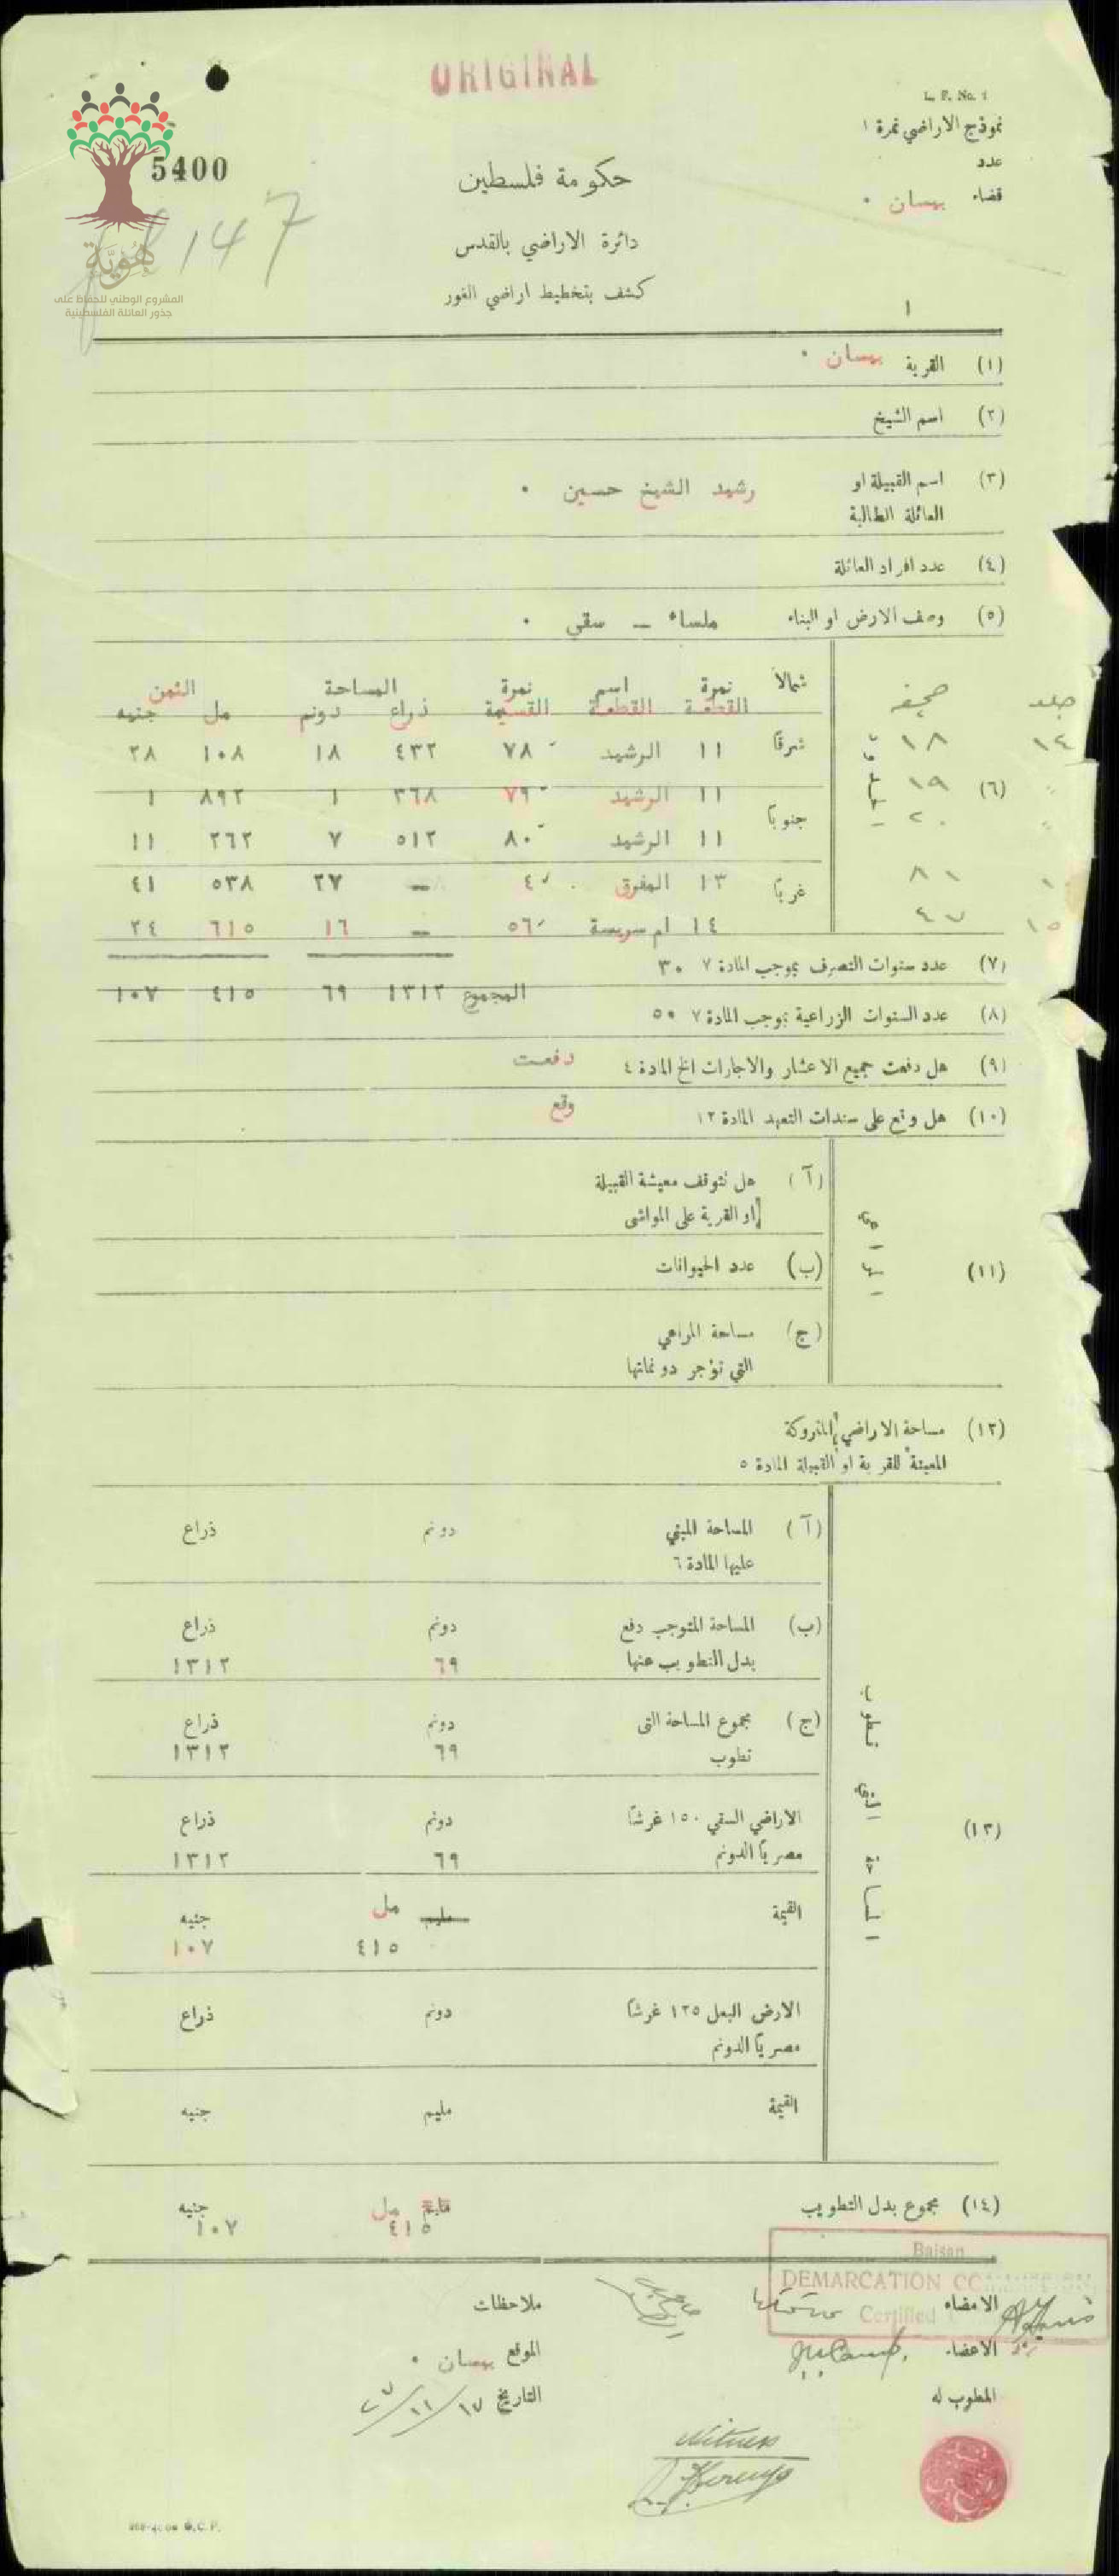 ORIGINAL
L. F. No. 1
نموذج الاراضي نمرة ١
عدد
قضاء بيسان ٠
5400
147
هُوِيَّة
المشروع الوطني للحفاظ على
جذور العائلة الفلسطينية
حكومة فلسطين
دائرة الاراضي بالقدس
كشف بتخطيط اراضي الغور
١
(١) القرية بيسان ٠
(٢) اسم الشيخ
(٣) اسم القبيلة او
العائلة الطالبة
رشيد الشيخ حسين ٠
(٤) عدد افراد العائلة
(٥) وصف الارض او البناء ملساء – سقي ٠
جلد صحيفه شمالاً نمرة القطعة اسم القطعة نمرة القسيمة المساحة ذراع دونم الثمن مل جنيه
١٤ ١٨ شرقاً ١١ الرشيد ٧٨ ٤٣٢ ١٨ ١٠٨ ٢٨
(٦) " ١٩ ١١ الرشيد ٧٩ ٣٦٨ ١ ٨٩٢ ١
" ٢٠ جنوباً ١١ الرشيد ٨٠ ٥١٢ ٧ ٢٦٢ ١١
٨١ غرباً ١٣ المفرق ٤ – ٢٧ ٥٣٨ ٤١
١٥ ٤٧ ١٤ ام سريسة ٥٦ – ١٦ ٦١٥ ٢٤
(٧) عدد سنوات التصرف بموجب المادة ٧ ٣٠
المجموع ١٣١٢ ٦٩ ٤١٥ ١٠٧
(٨) عدد السنوات الزراعية بموجب المادة ٧ ٥٠
(٩) هل دفعت جميع الاعشار والاجارات الخ المادة ٤ دفعت
(١٠) هل وقع على سندات التعهد المادة ١٢ وقع
(آ) هل تتوقف معيشة القبيلة
او القرية على المواشي
(١١) (ب) عدد الحيوانات
(ج) مساحة المراعي
التي تؤجر دونماتها
(١٢) مساحة الاراضي المتروكة
المعينة للقرية او القبيلة المادة ٥
(آ) المساحة المبني دونم ذراع
عليها المادة ٦
(ب) المساحة المتوجب دفع دونم ذراع
بدل التطويب عنها ٦٩ ١٣١٢
(ج) مجموع المساحة التي دونم ذراع
تطوب ٦٩ ١٣١٢
(١٣) الاراضي السقي ١٥٠ غرشاً دونم ذراع
مصرياً الدونم ٦٩ ١٣١٢
القيمة مليم مل جنيه
٤١٥ ١٠٧
الارض البعل ١٢٥ غرشاً دونم ذراع
مصرياً الدونم
القيمة مليم جنيه
(١٤) مجموع بدل التطويب مل جنيه
٤١٥ ١٠٧
Baisan
DEMARCATION COMMISSION
Certified
الامضاء ملاحظات
الاعضاء الموقع بيسان ٠
المطوب له التاريخ ١٧/١١/٢٧
Witness